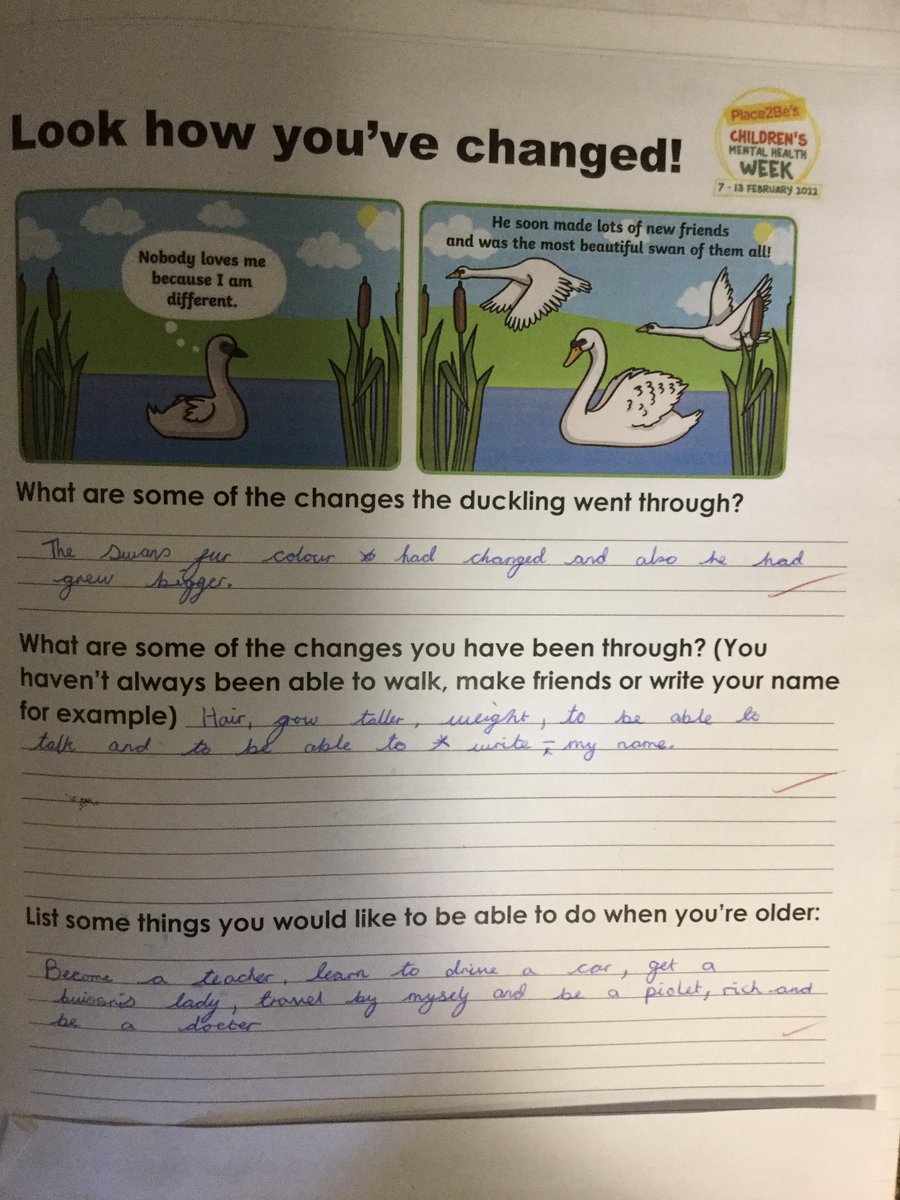 Look how you've changed!
Place2Be's
CHILDREN'S
MENTAL HEALTH
WEEK
7 - 13 FEBRUARY 2022
Nobody loves me
because I am
different.
He soon made lots of new friends
and was the most beautiful swan of them all!
What are some of the changes the duckling went through?
The swans fur colour had changed and also he had
grew bigger.
What are some of the changes you have been through? (You
haven't always been able to walk, make friends or write your name
for example) Hair, grow taller, weight, to be able to
talk and to be able to write my name.
List some things you would like to be able to do when you're older:
Become a teacher, learn to drive a car, get a
buissnis lady, travel by myself and be a pielet, rich and
be a docter